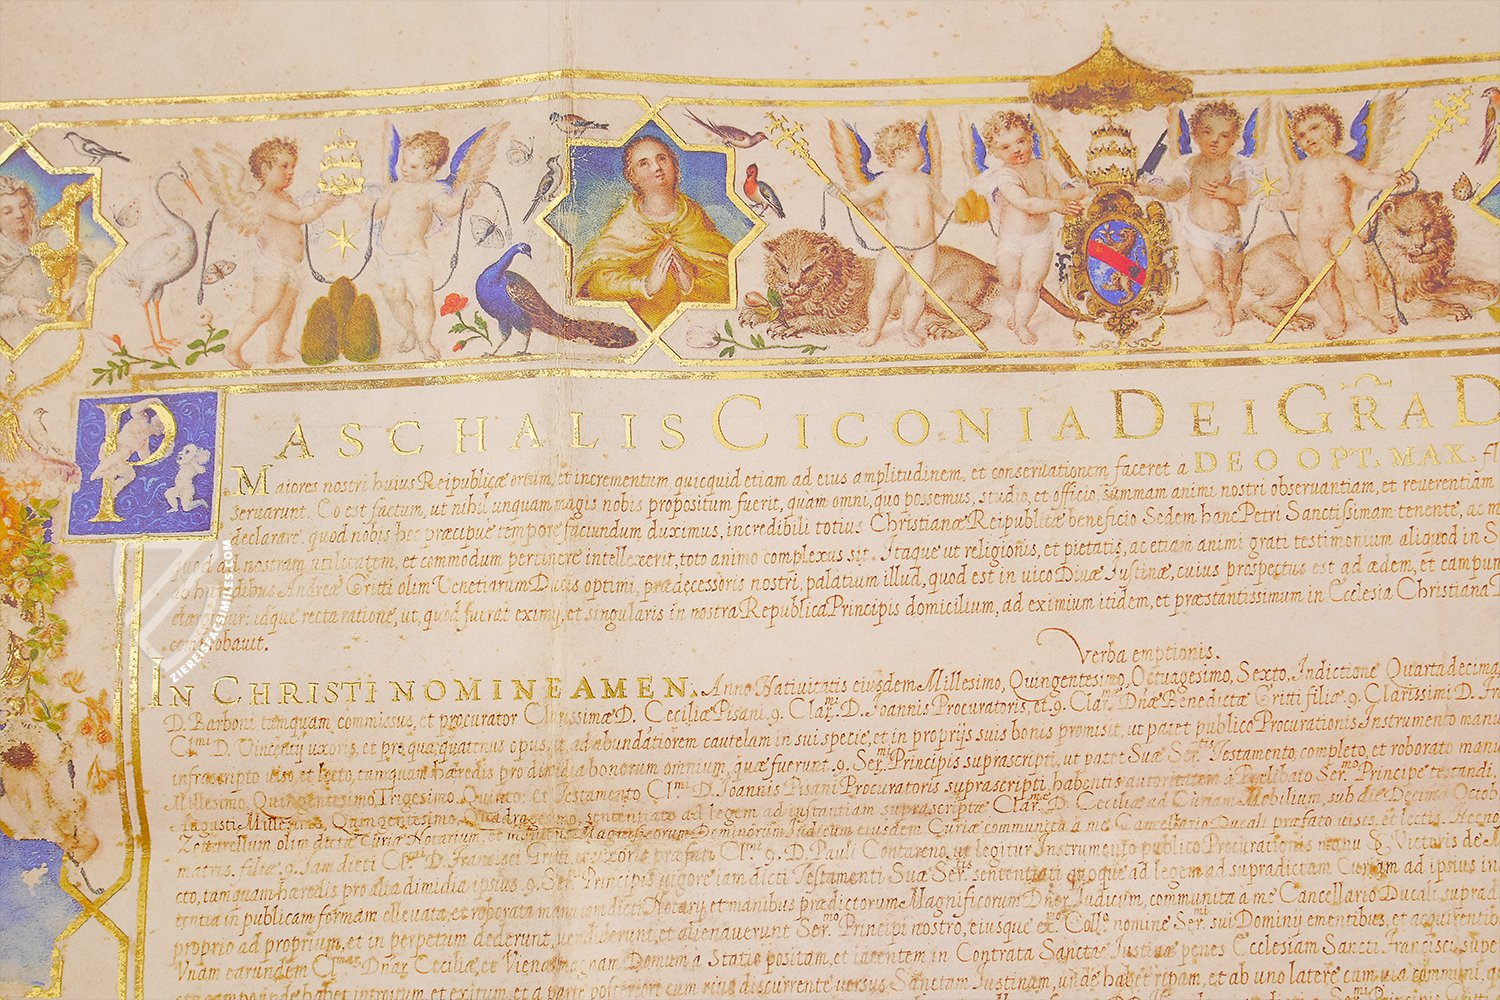 PASCHALIS CICONIA DEI GRÃA D
Maiores nostri huius Reipublicæ ortum, et incrementum quicquid etiam ad eius amplitudinem, et conseruationem faceret a DEO OPT. MAX.
seruarunt. Eo est factum, ut nihil unquam magis nobis propositum fuerit, quàm omni, quo possemus, studio, et officio, summam animi nostri obseruantiam, et reuerentiam
declarare, quod nobis hoc præcipuè tempore faciundum duximus, incredibili totius Christianæ Reipublicæ beneficio Sedem hanc Petri Sanctissimam tenente, ac
quod ad nostram utilitatem, et commodum pertinere intellexerit, toto animo complexus sit. Itaque ut religionis, et pietatis, ac etiam animi grati testimonium aliquod in S
ab hæredibus Andreæ Gritti olim Venetiarum Ducis optimi, prædecessoris nostri, palatium illud, quod est in uico Diuæ Iustinæ, cuius prospectus est ad ædem, et campum
idque recta ratione, ut, quod fuerat eximij, et singularis in nostra Republica Principis domicilium, ad eximium itidem, et præstantissimum in Ecclesia Christiana
comprobauit.
Verba emptionis.
IN CHRISTI NOMINE AMEN. Anno Natiuitatis eiusdem Millesimo, Quingentesimo, Octuagesimo, Sexto, Indictione Quartadecima
D. Barboni tamquam commissus, et procurator Clarissimæ D. Ceciliæ Pisani q. Clar.mi D. Ioannis Procuratoris, et q. Clar.me Dnæ Benedictæ Gritti filiæ q. Clarissimi D.
Cl.mi D. Vincentij uxoris, et pro qua, quatenus opus sit, ad abundatiorem cautelam in sui specie, et in proprijs suis bonis promisit, ut patet publico Procurationis Instrumento manu
infrascripto uiso, et lecto, tamquam hæredis pro dimidia bonorum omnium, quæ fuerunt q. Ser.mi Principis suprascripti, ut patet Suæ Ser.tis Testamento, completo, et roborato manu
Millesimo, Quingentesimo Trigesimo, Quinto: et Testamento Cl.mi D. Ioannis Pisani Procuratoris suprascripti, habentis autoritatem à Prælibato Ser.mo Principe testandi,
Augusti Millesimo, Quingentesimo, Quadragesimo, sententiato ad legem ad instantiam suprascriptæ Clar.me D. Ceciliæ ad Curiam Mobilium, sub die Decimo Octobr
olim dictæ Curiæ Notarium, et manibus Magnificorum Dominorum Iudicum eiusdem Curiæ communita à me Cancellario Ducali præfato uisis, et lectis. Necnon
matris, filiæ q. Iam dicti Cl.mi D. Francisci Gritti, et uxoris præfati Cl.mi q. D. Pauli Contareno, ut legitur Instrumento publico Procurationis manu S. Victoris de
cto, tamquam hæredis pro alia dimidia ipsius q. Ser.mi Principis uigore iam dicti Testamenti Suæ Ser.tis sententiati quoque ad legem ad supradictam Curiam ad ipsius
tentia in publicam formam elleuata, et roborata manu iam dicti Notarij, et manibus prædictorum Magnificorum Dnor. Iudicum, communita a me Cancellario Ducali suprad
proprio ad proprium, et in perpetum dederunt, uendiderunt, et alienauerunt Ser.mo Principi nostro, eiusque Ex.mo Coll.o nomine Ser.mi sui Dominij ementibus, et acquirentibus
Vnam earundem Cl.mar. Dnar. Ceciliæ, et Vienæ magnam Domum a Statio positam, et iacentem in Contrata Sanctæ Iustinæ penes Ecclesiam Sancti Francisci, supe
habet introitum et exitum, et a parte posteriori cum riuo discurrente uersus Sanctam Iustinam, unde habet ripam, et ab uno latere cum uia communi,
ZIEREIS FACSIMILES.COM